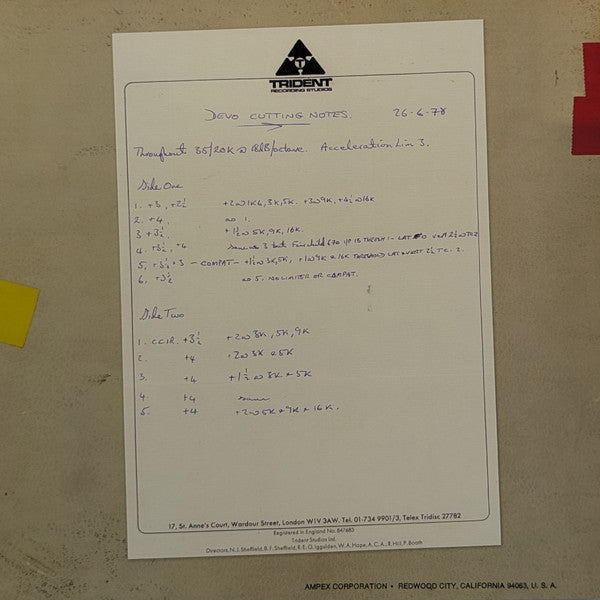 TRIDENT
RECORDING STUDIOS
DEVO CUTTING NOTES. 26-6-78
Throughout 35/20K @ 18dB/octave. Acceleration Lim 3.
Side One
1. +3, +2½ +2 @ 1K6, 3K, 5K. +3 @ 9K, +4½ @ 16K
2. +4 as 1.
3 +3½ +1½ @ 5K, 9K, 16K.
4. +3½, +4 Same as 3 but Fairchild 670 I/P 13 THRESH 1 - LAT VERT 2½ @ TC2
5, +3½ +3 - COMPAT - +1½ @ 3K, 5K, +1 @ 9K & 16K THRESHOLD LAT VERT 2½ TC. 2.
6, +3½ as 5. NO LIMITER OR COMPAT.
Side Two
1. CCIR. +3½ +2 @ 3K, 5K, 9K
2. +4 +2 @ 3K & 5K
3. +4 +1½ @ 3K & 5K
4. +4 same
5. +4 +2 @ 5K & 9K & 16K.
17, St. Anne's Court, Wardour Street, London W1V 3AW. Tel. 01-734 9901/3, Telex Tridisc 27782
Registered in England No. 847683
Trident Studios Ltd.
Directors, N. J. Sheffield, B. F. Sheffield, R. E. O. Iggulden, W. A. Hope, A. C. A., R. Hill, P. Booth
AMPEX CORPORATION • REDWOOD CITY, CALIFORNIA 94063, U. S. A.